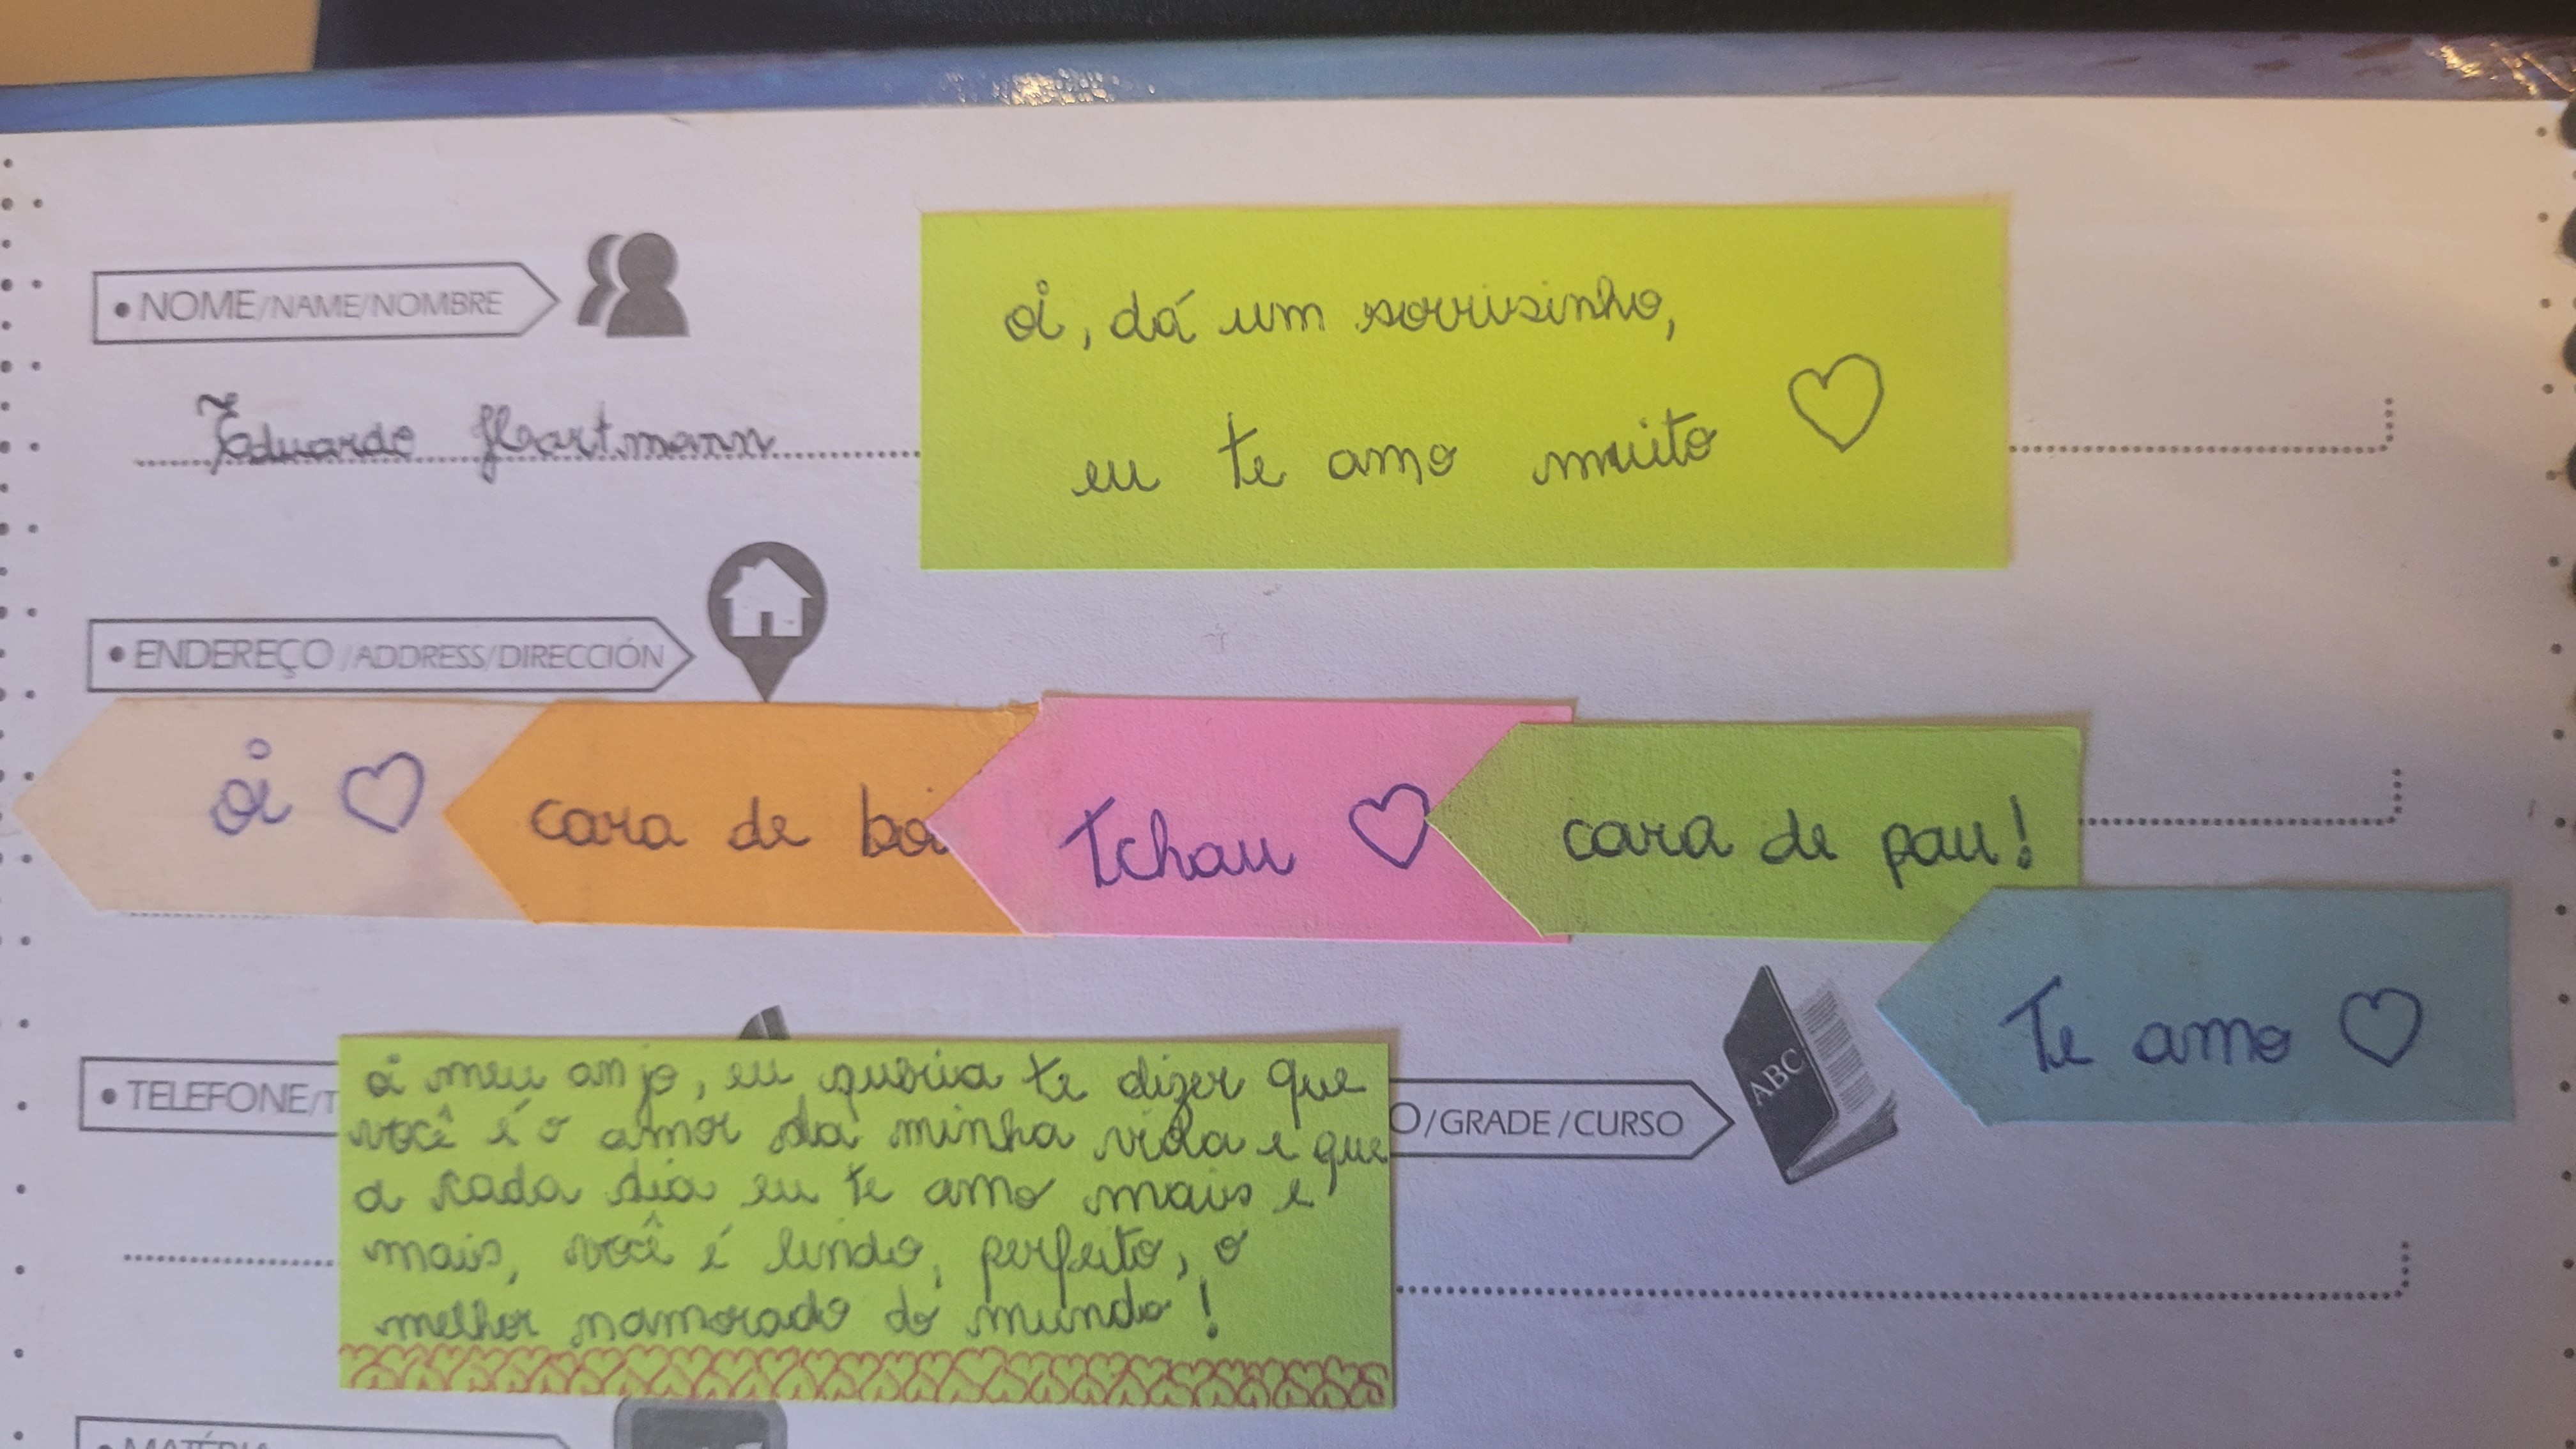 • NOME/NAME/NOMBRE
Eduardo Hartmann
oi, dá um sorrisinho,
eu te amo muito ♡
• ENDEREÇO /ADDRESS/DIRECCIÓN
oi ♡
cara de boi
tchau ♡
cara de pau!
Te amo ♡
• TELEFONE/T
O/GRADE/CURSO
ABC
oi meu anjo, eu queria te dizer que
você é o amor da minha vida e que
a cada dia eu te amo mais e
mais, você é lindo, perfeito, o
melhor namorado do mundo!
• MATÉRIA